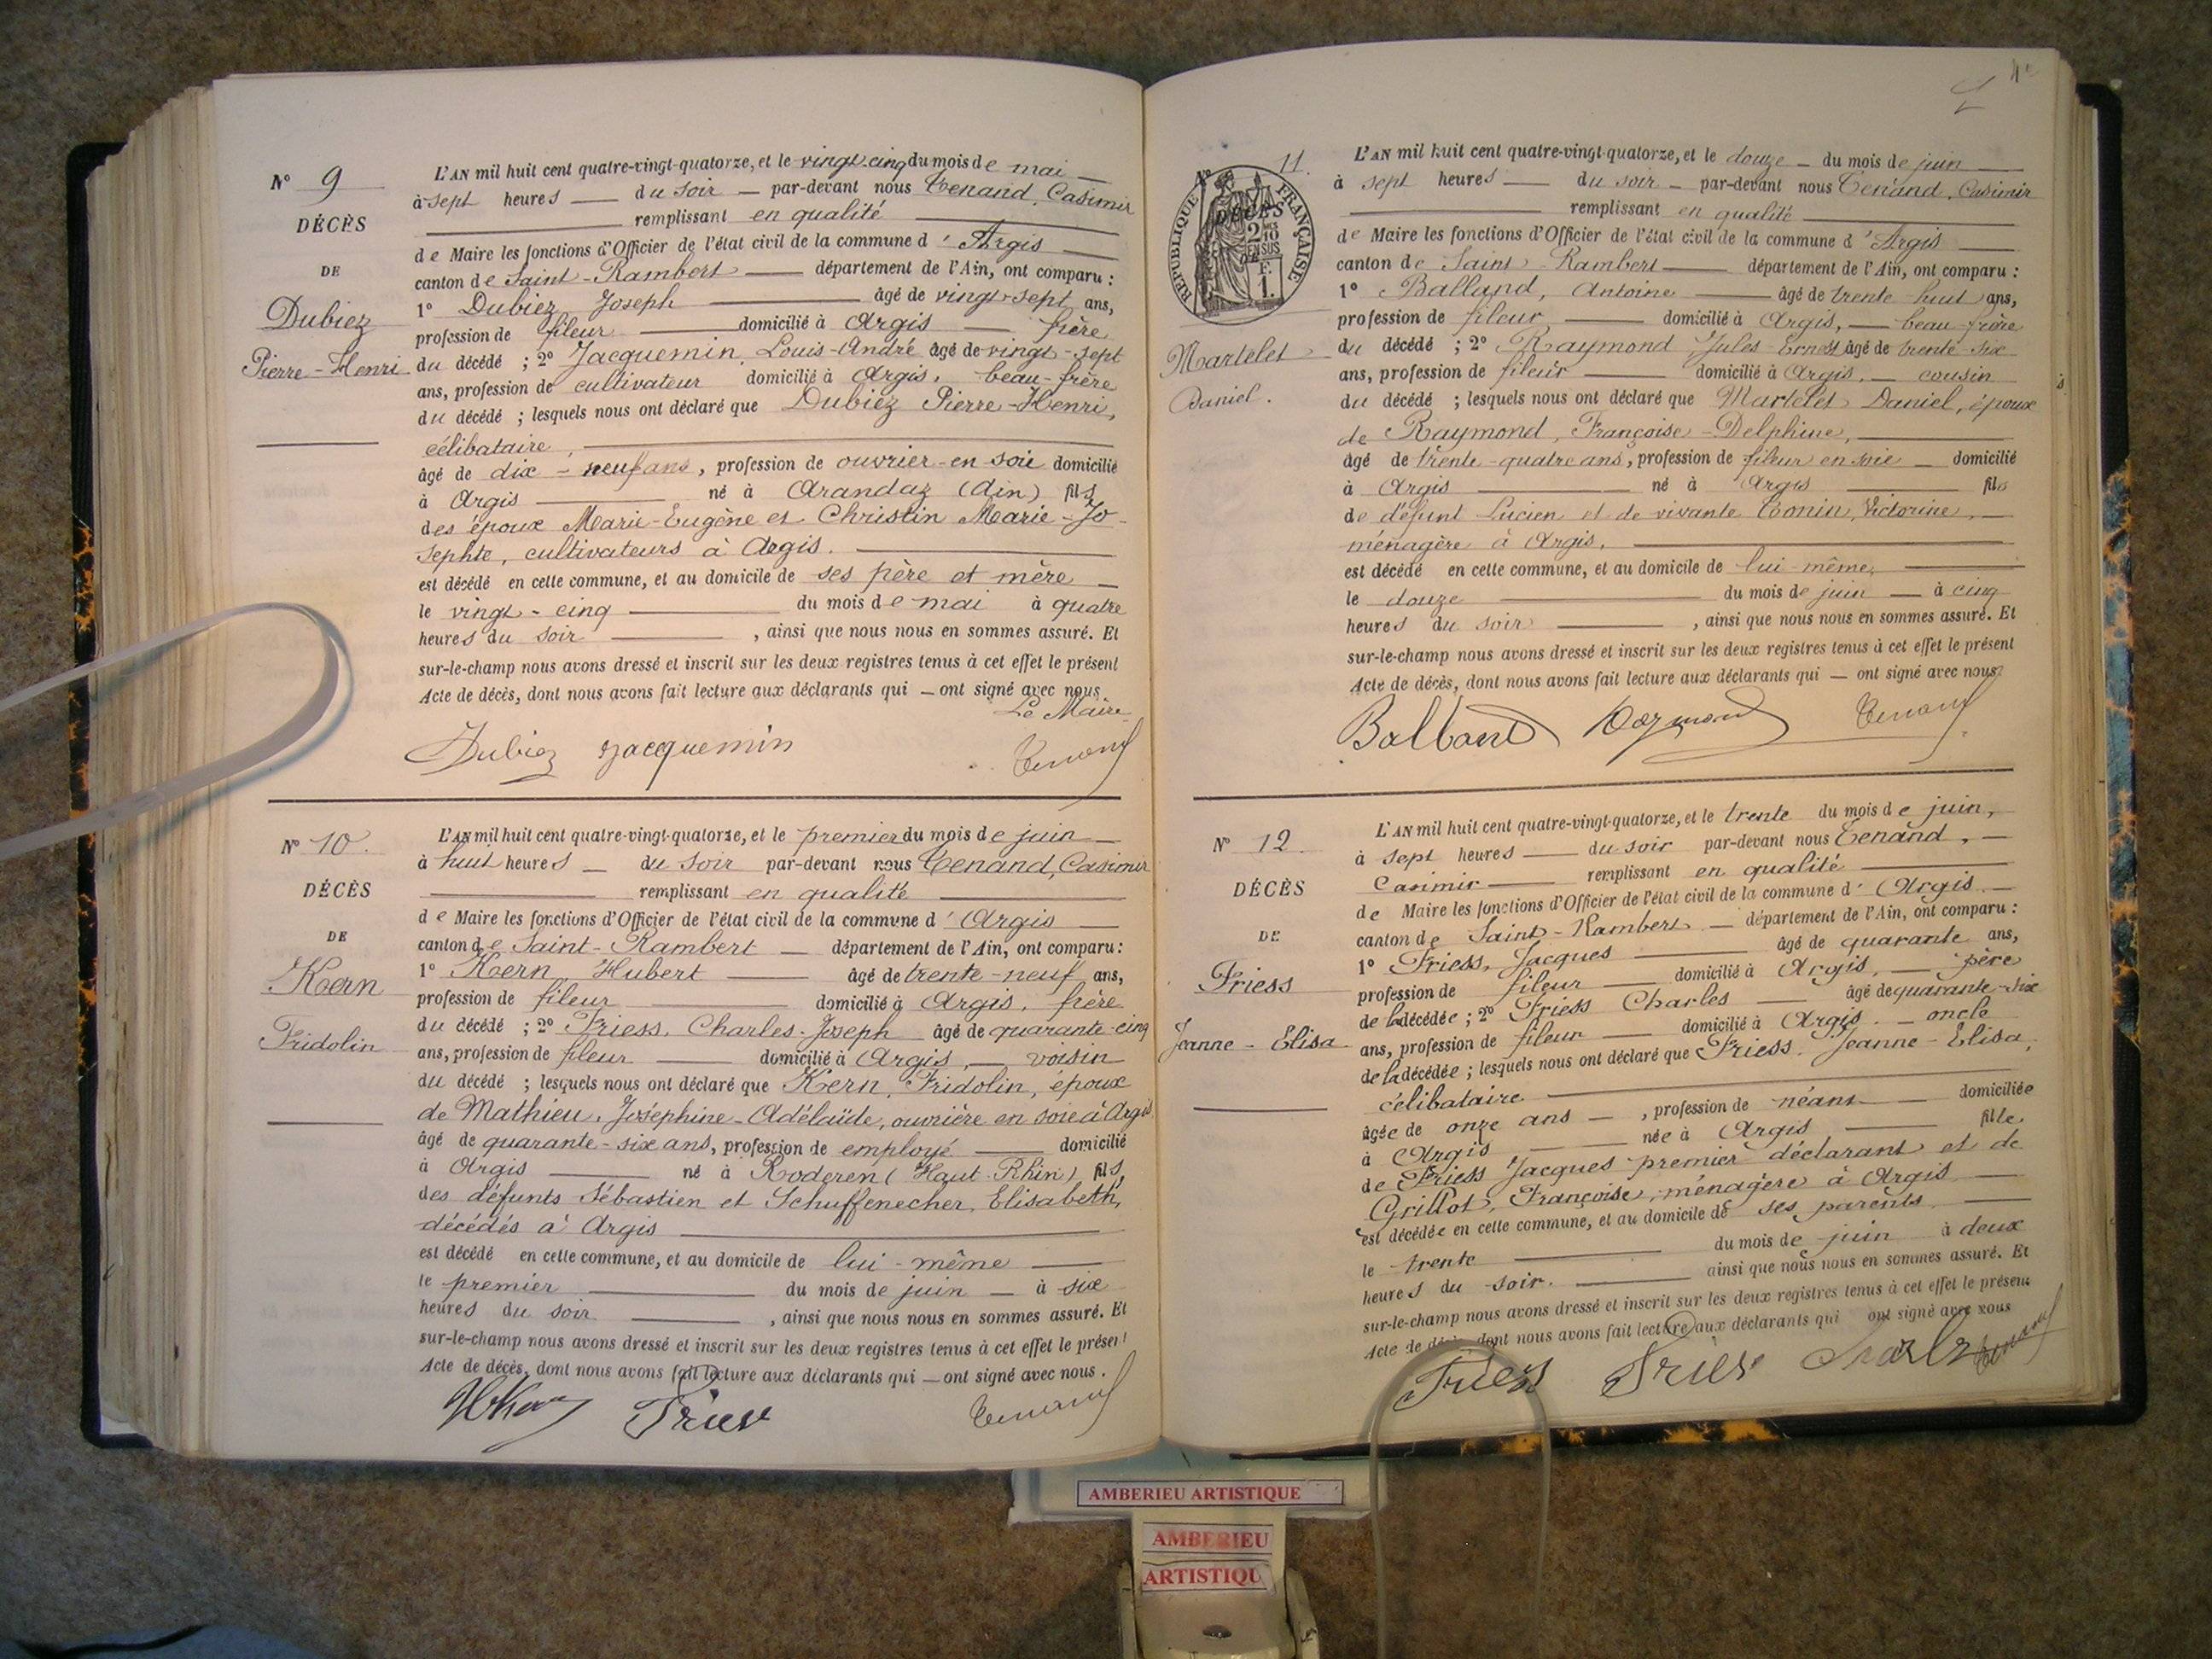 N° 9
DÉCÈS
DE
Dubiez
Pierre-Henri
L'AN mil huit cent quatre-vingt-quatorze, et le vingt-cinq du mois de mai
à sept heures du soir par-devant nous Tenand, Casimir
remplissant en qualité
de Maire les fonctions d'Officier de l'état civil de la commune d'Argis
canton de Saint-Rambert département de l'Ain, ont comparu :
1° Dubiez Joseph âgé de vingt-sept ans,
profession de fileur domicilié à Argis frère
du décédé ; 2° Jacquemin, Louis-André âgé de vingt-sept
ans, profession de cultivateur domicilié à Argis, beau-frère
du décédé ; lesquels nous ont déclaré que Dubiez Pierre-Henri,
célibataire,
âgé de dix-neuf ans, profession de ouvrier-en-soie domicilié
à Argis né à Arandaz (Ain) fils
des époux Marie-Eugène et Christin Marie-Jo-
sephte, cultivateurs à Argis.
est décédé en cette commune, et au domicile de ses père et mère
le vingt-cinq du mois de mai à quatre
heures du soir, ainsi que nous nous en sommes assuré. Et
sur-le-champ nous avons dressé et inscrit sur les deux registres tenus à cet effet le présent
Acte de décès, dont nous avons fait lecture aux déclarants qui ont signé avec nous.
Le Maire
Dubiez Jacquemin Tenand
N° 10.
DÉCÈS
DE
Kern
Fridolin
L'AN mil huit cent quatre-vingt-quatorze, et le premier du mois de juin
à huit heures du soir par-devant nous Tenand, Casimir
remplissant en qualité
de Maire les fonctions d'Officier de l'état civil de la commune d'Argis
canton de Saint-Rambert département de l'Ain, ont comparu :
1° Kern Hubert âgé de trente-neuf ans,
profession de fileur domicilié à Argis, frère
du décédé ; 2° Friess, Charles-Joseph âgé de quarante-cinq
ans, profession de fileur domicilié à Argis, voisin
du décédé ; lesquels nous ont déclaré que Kern, Fridolin, époux
de Mathieu, Joséphine-Adélaïde, ouvrière en soie à Argis
âgé de quarante-six ans, profession de employé domicilié
à Argis né à Roderen (Haut-Rhin) fils
des défunts Sébastien et Schuffenecher, Elisabeth,
décédés à Argis
est décédé en cette commune, et au domicile de lui-même
le premier du mois de juin à six
heures du soir, ainsi que nous nous en sommes assuré. Et
sur-le-champ nous avons dressé et inscrit sur les deux registres tenus à cet effet le présent
Acte de décès, dont nous avons fait lecture aux déclarants qui ont signé avec nous.
HKern Friess Tenand
11.
RÉPUBLIQUE FRANÇAISE
DÉCÈS
DE
2/10
EN SUS
F.
1.
Martelet
Daniel.
L'AN mil huit cent quatre-vingt-quatorze, et le douze du mois de juin
à sept heures du soir par-devant nous Tenand, Casimir
remplissant en qualité
de Maire les fonctions d'Officier de l'état civil de la commune d'Argis
canton de Saint-Rambert département de l'Ain, ont comparu :
1° Balland, Antoine âgé de trente huit ans,
profession de fileur domicilié à Argis, beau-frère
du décédé ; 2° Raymond, Jules-Ernest âgé de trente-six
ans, profession de fileur domicilié à Argis, cousin
du décédé ; lesquels nous ont déclaré que Martelet Daniel, époux
de Raymond, Françoise-Delphine,
âgé de trente-quatre ans, profession de fileur en soie domicilié
à Argis né à Argis fils
de défunt Lucien et de vivante Tonin, Victorine,
ménagère à Argis,
est décédé en cette commune, et au domicile de lui-même,
le douze du mois de juin à cinq
heures du soir, ainsi que nous nous en sommes assuré. Et
sur-le-champ nous avons dressé et inscrit sur les deux registres tenus à cet effet le présent
Acte de décès, dont nous avons fait lecture aux déclarants qui ont signé avec nous.
Balland Raymond Tenand
N° 12.
DÉCÈS
DE
Friess
Jeanne-Elisa
L'AN mil huit cent quatre-vingt-quatorze, et le trente du mois de juin,
à sept heures du soir par-devant nous Tenand,
Casimir remplissant en qualité
de Maire les fonctions d'Officier de l'état civil de la commune d'Argis
canton de Saint-Rambert département de l'Ain, ont comparu :
1° Friess, Jacques âgé de quarante ans,
profession de fileur domicilié à Argis, père
de la décédée ; 2° Friess Charles âgé de quarante-six
ans, profession de fileur domicilié à Argis. oncle
de la décédée ; lesquels nous ont déclaré que Friess, Jeanne-Elisa,
célibataire
âgée de onze ans, profession de néant domiciliée
à Argis née à Argis fille
de Friess Jacques premier déclarant et de
Grillot, Françoise, ménagère à Argis
est décédée en cette commune, et au domicile de ses parents
le trente du mois de juin à deux
heures du soir. ainsi que nous nous en sommes assuré. Et
sur-le-champ nous avons dressé et inscrit sur les deux registres tenus à cet effet le présent
Acte de décès, dont nous avons fait lecture aux déclarants qui ont signé avec nous
Friess Friess Charles Tenand
AMBERIEU ARTISTIQUE
AMBERIEU
ARTISTIQU